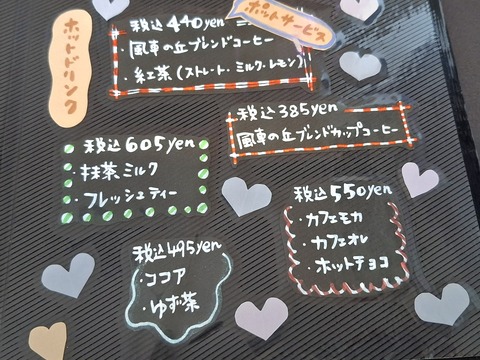 ホットドリンク
ポットサービス
税込440yen
・風車の丘ブレンドコーヒー
・紅茶(ストレート・ミルク・レモン)
税込385yen
風車の丘ブレンドカップコーヒー
税込605yen
・抹茶ミルク
・フレッシュティー
税込550yen
・カフェモカ
・カフェオレ
・ホットチョコ
税込495yen
・ココア
・ゆず茶